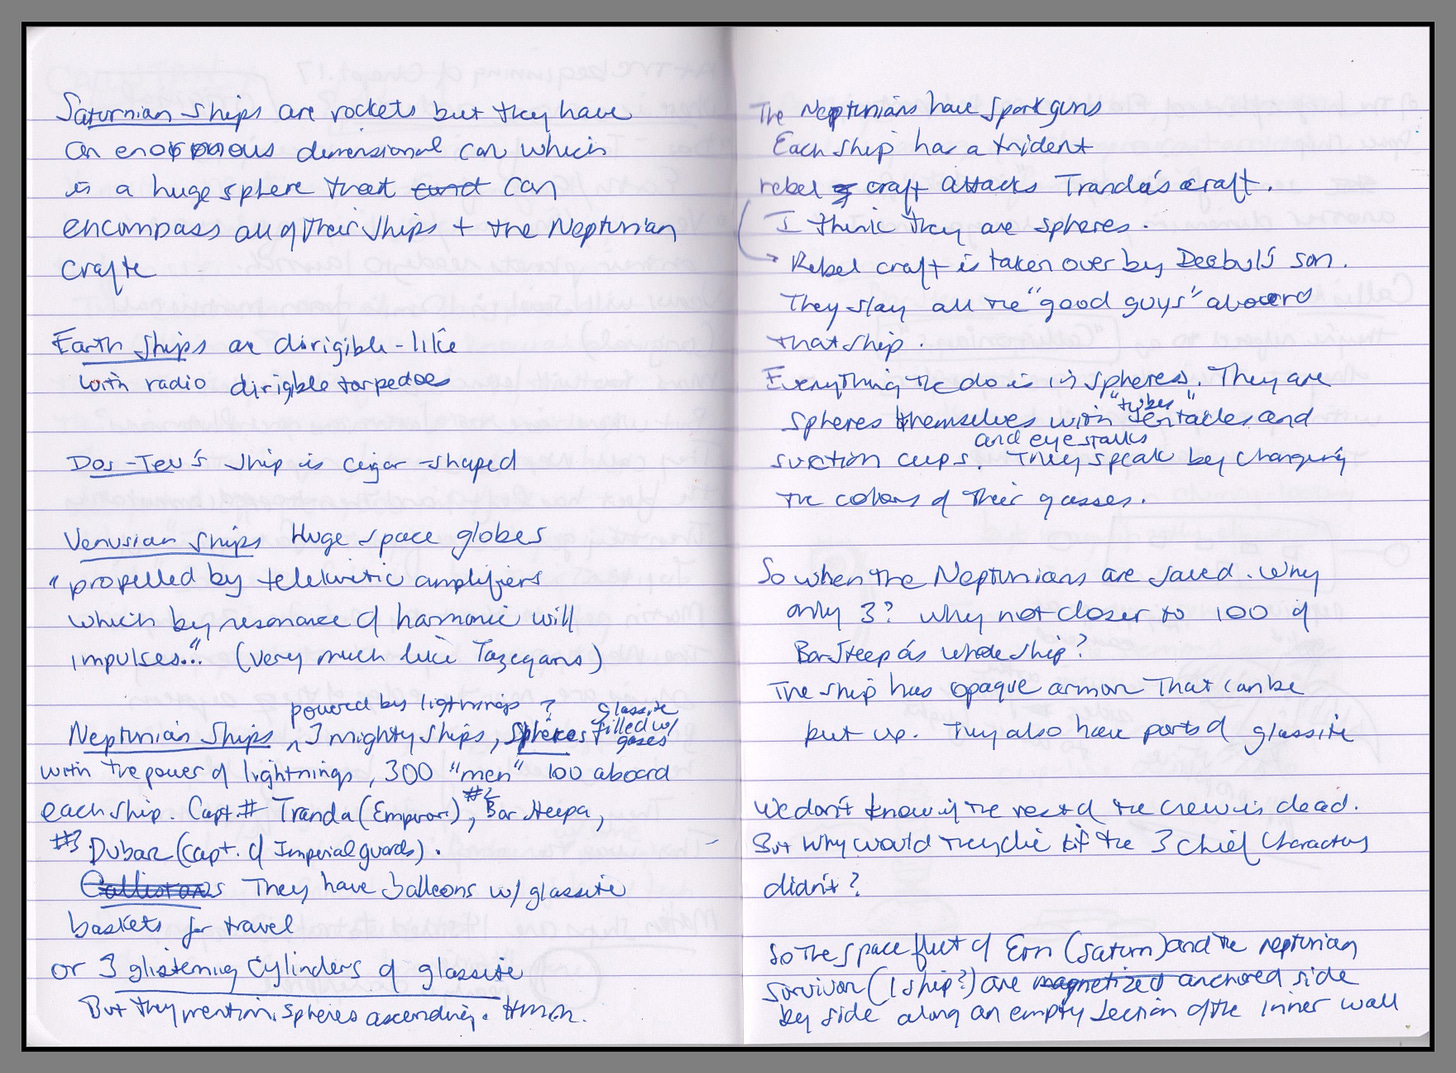 Saturnian Ships are rockets but they have
an enormous dimensional car which
is a huge sphere that can
encompass all of their ships + the Neptunian
crafts
Earth Ships are dirigible-like
with radio dirigible torpedoes
Dos-Tev's ship is cigar-shaped
Venusian Ships Huge space globes
"propelled by telekinetic amplifiers
which by resonance of harmonic will
impulses..." (very much like Tazegans)
powered by lightnings ? glassite
Neptunian Ships ^ 3 mighty ships, spheres filled w/ gases
with the power of lightnings, 300 "men" 100 aboard
each ship. Capt # Tranda (Emperor), #2 Bar Steepa,
#3 Dubar (Capt. of Imperial guards).
Callistoans They have balloons w/ glassite
baskets for travel
or 3 glistening cylinders of glassite
But they mention spheres ascending. Hmm.
The Neptunians have spark guns
Each ship has a trident
rebel craft attacks Tranda's craft.
I think they are spheres.
→ Rebel craft is taken over by Deebul's son.
They slay all the "good guys" aboard
that ship.
Everything the do is in spheres. They are
"tubes"
spheres themselves with tentacles and
and eyestalks
suction cups. They speak by changing
the colors of their gasses.
So when the Neptunians are saved. Why
only 3? Why not closer to 100 of
Bar Steepa's whole ship?
The ship has opaque armor That can be
put up. They also have ports of glassite
We don't know if the rest of the crew is dead.
But why would they die if the 3 chief characters
didn't?
So the space fleet of Ern (Saturn) and the neptunian
survivor (1 ship?) are magnetized anchored side
by side along an empty section of the inner wall